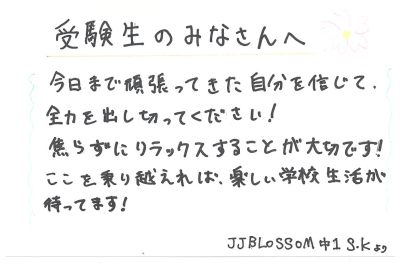 受験生のみなさんへ
今日まで頑張ってきた自分を信じて、
全力を出し切ってください!
焦らずにリラックスすることが大切です!
ここを乗り越えれば、楽しい学校生活が
待ってます!
JJBLOSSOM中1 S.Kより